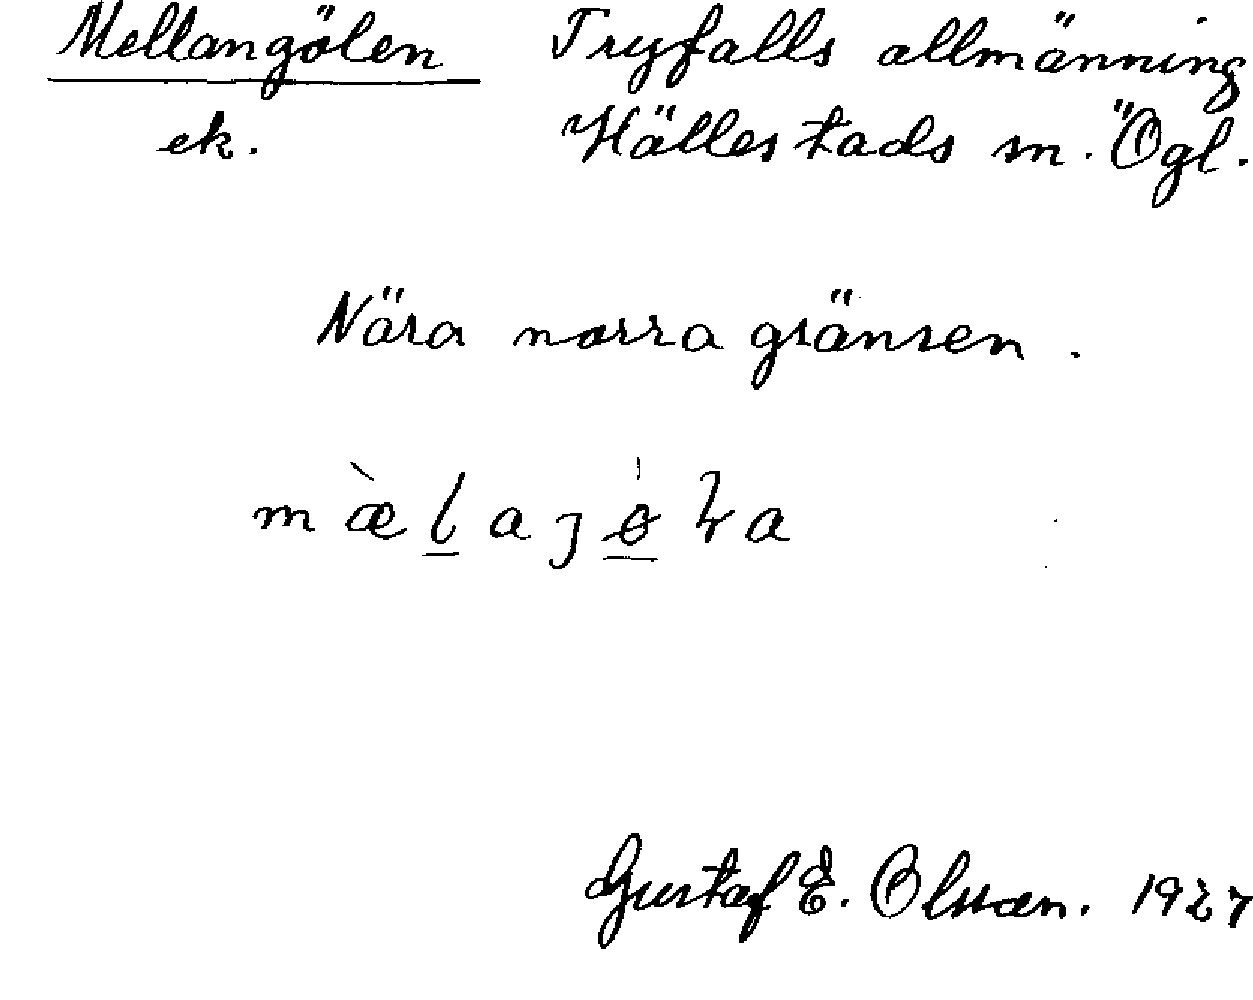 Mellangölen Tryfalls allmänning
ek. Hällestads sn. Ögl.
Nära norra gränsen.
mæ̀l̲aȷɵ̲̍ꞎa
Gustaf E. Olsson. 1927